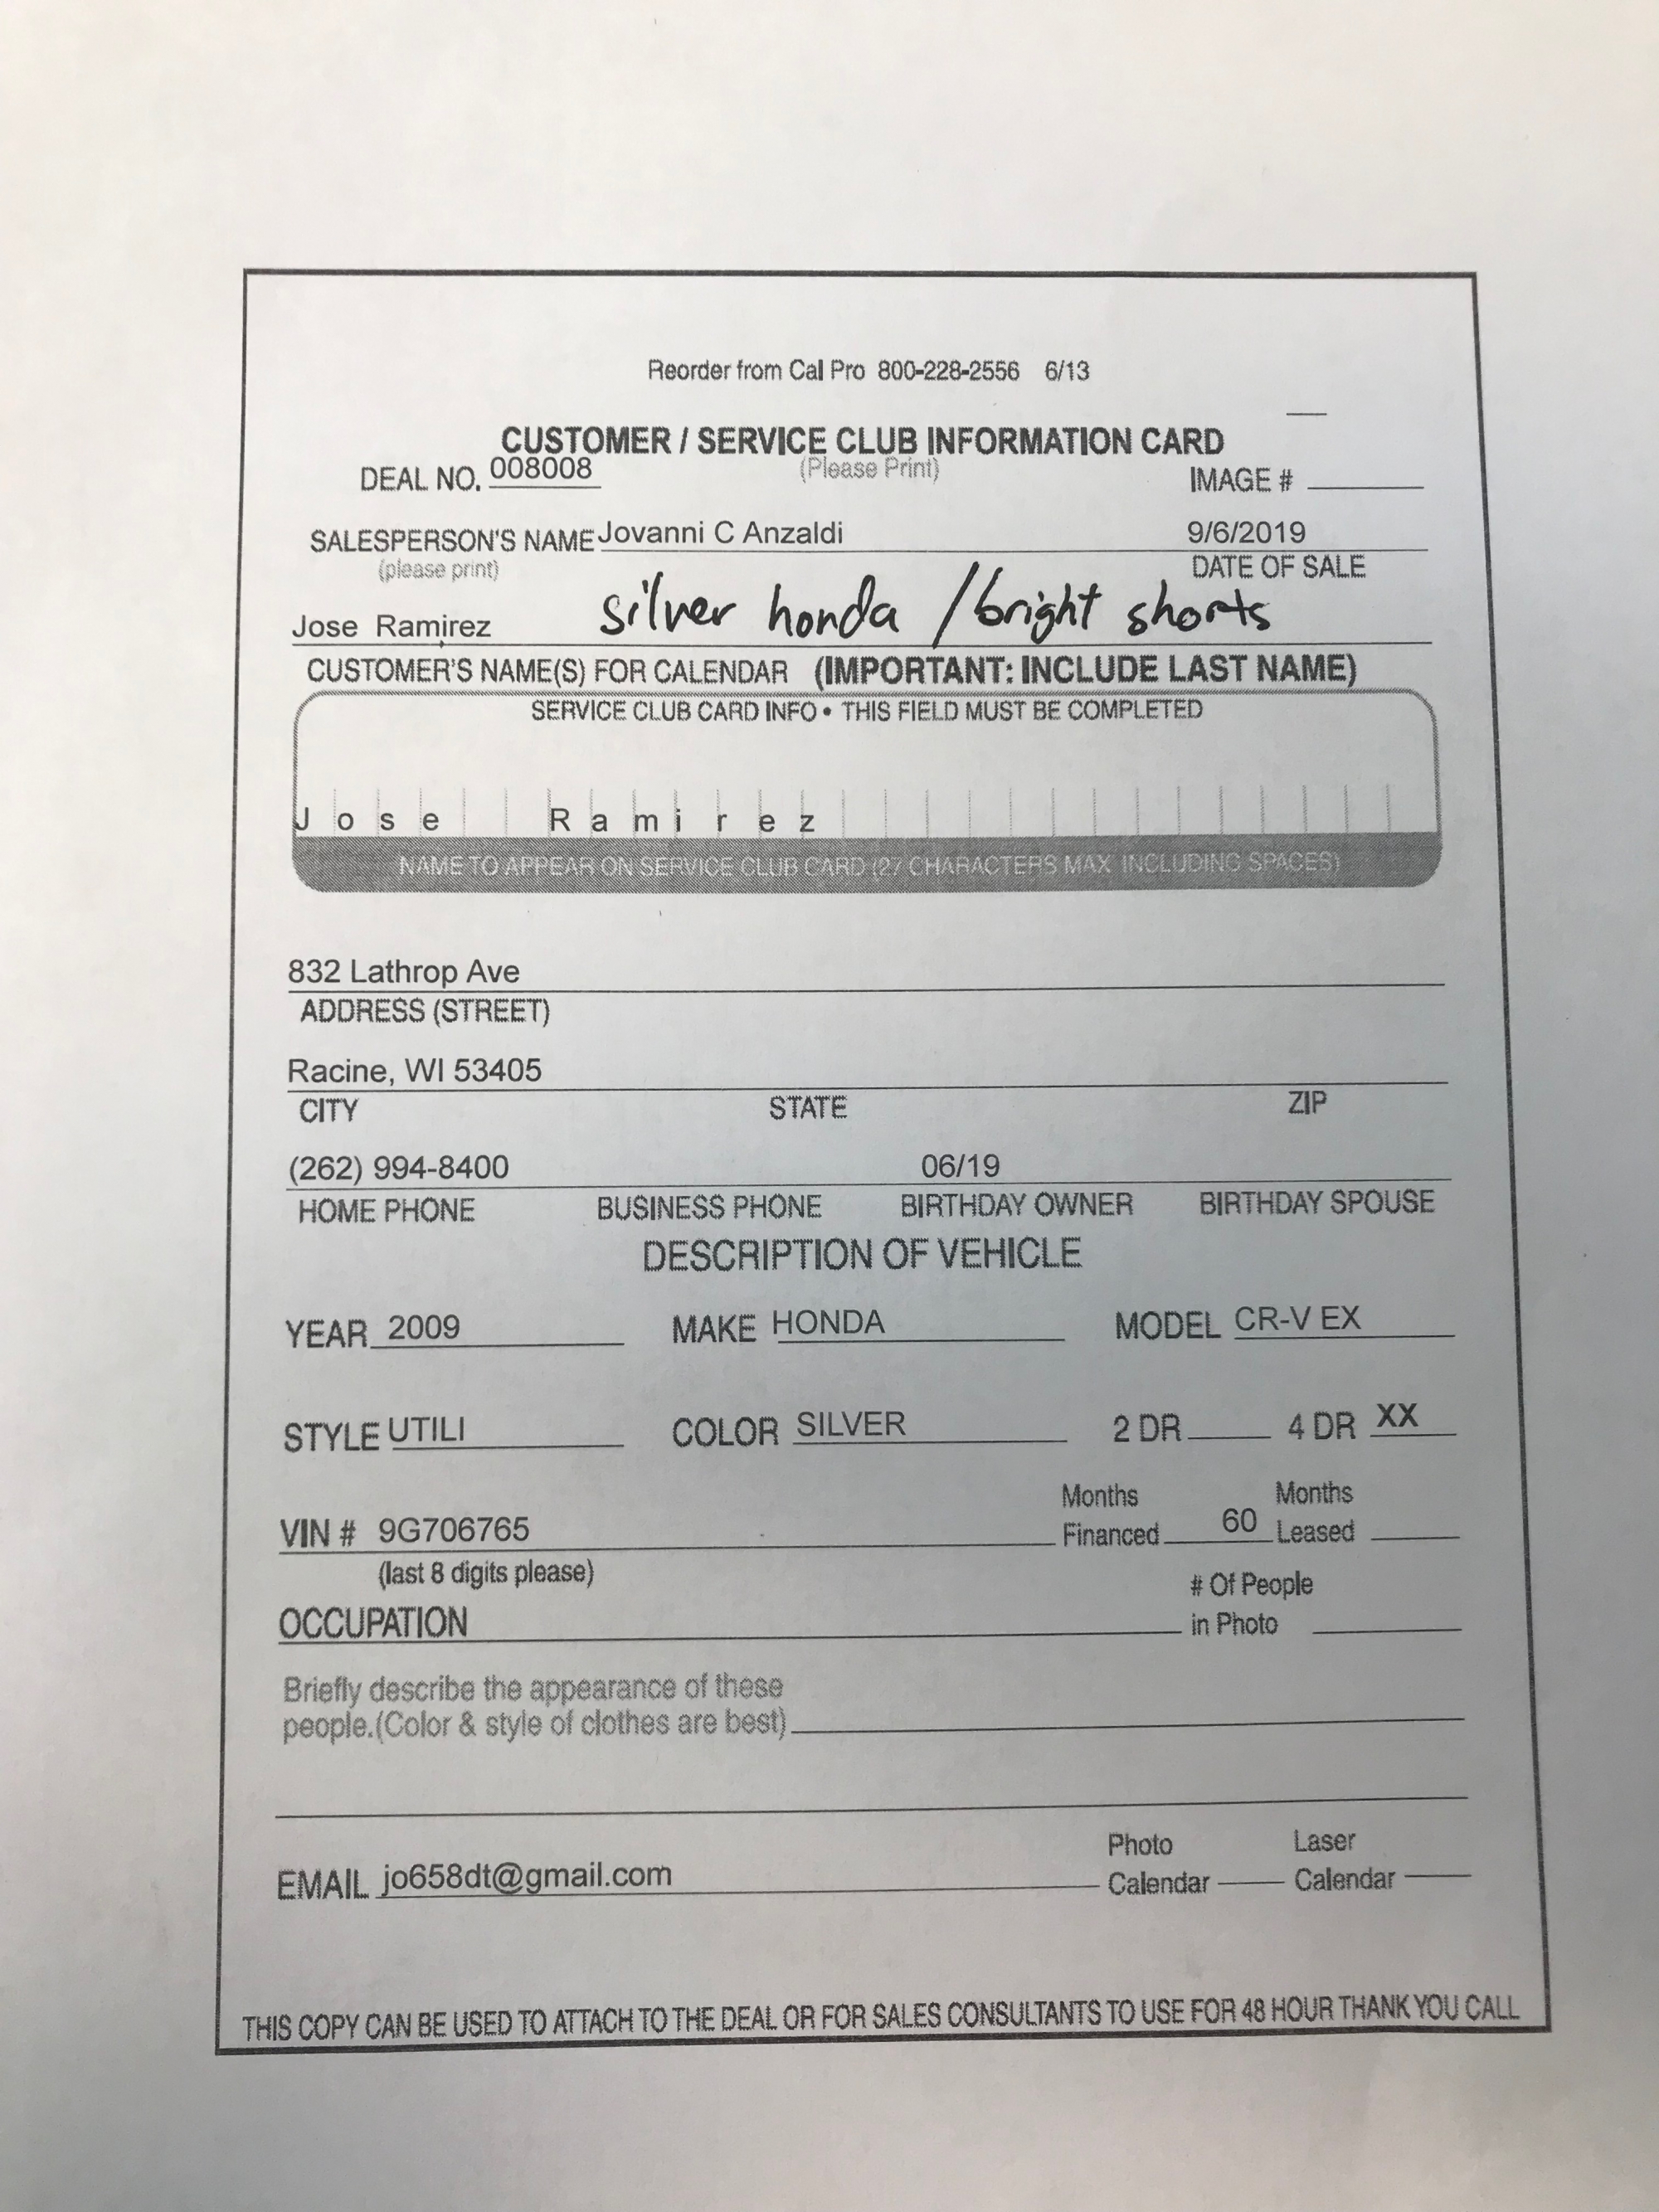 Reorder from Cal Pro 800-228-2556 6/13
CUSTOMER / SERVICE CLUB INFORMATION CARD
DEAL NO. 008008 (Please Print) IMAGE #
SALESPERSON'S NAME Jovanni C Anzaldi 9/6/2019
(please print) DATE OF SALE
Jose Ramirez silver honda / bright shorts
CUSTOMER'S NAME(S) FOR CALENDAR (IMPORTANT: INCLUDE LAST NAME)
SERVICE CLUB CARD INFO • THIS FIELD MUST BE COMPLETED
Jose Ramirez
NAME TO APPEAR ON SERVICE CLUB CARD (27 CHARACTERS MAX INCLUDING SPACES)
832 Lathrop Ave
ADDRESS (STREET)
Racine, WI 53405
CITY STATE ZIP
(262) 994-8400 06/19
HOME PHONE BUSINESS PHONE BIRTHDAY OWNER BIRTHDAY SPOUSE
DESCRIPTION OF VEHICLE
YEAR 2009 MAKE HONDA MODEL CR-V EX
STYLE UTILI COLOR SILVER 2 DR 4 DR XX
Months Months
VIN # 9G706765 Financed 60 Leased
(last 8 digits please) # Of People
OCCUPATION in Photo
Briefly describe the appearance of these
people.(Color & style of clothes are best)
Photo Laser
EMAIL jo658dt@gmail.com Calendar Calendar
THIS COPY CAN BE USED TO ATTACH TO THE DEAL OR FOR SALES CONSULTANTS TO USE FOR 48 HOUR THANK YOU CALL